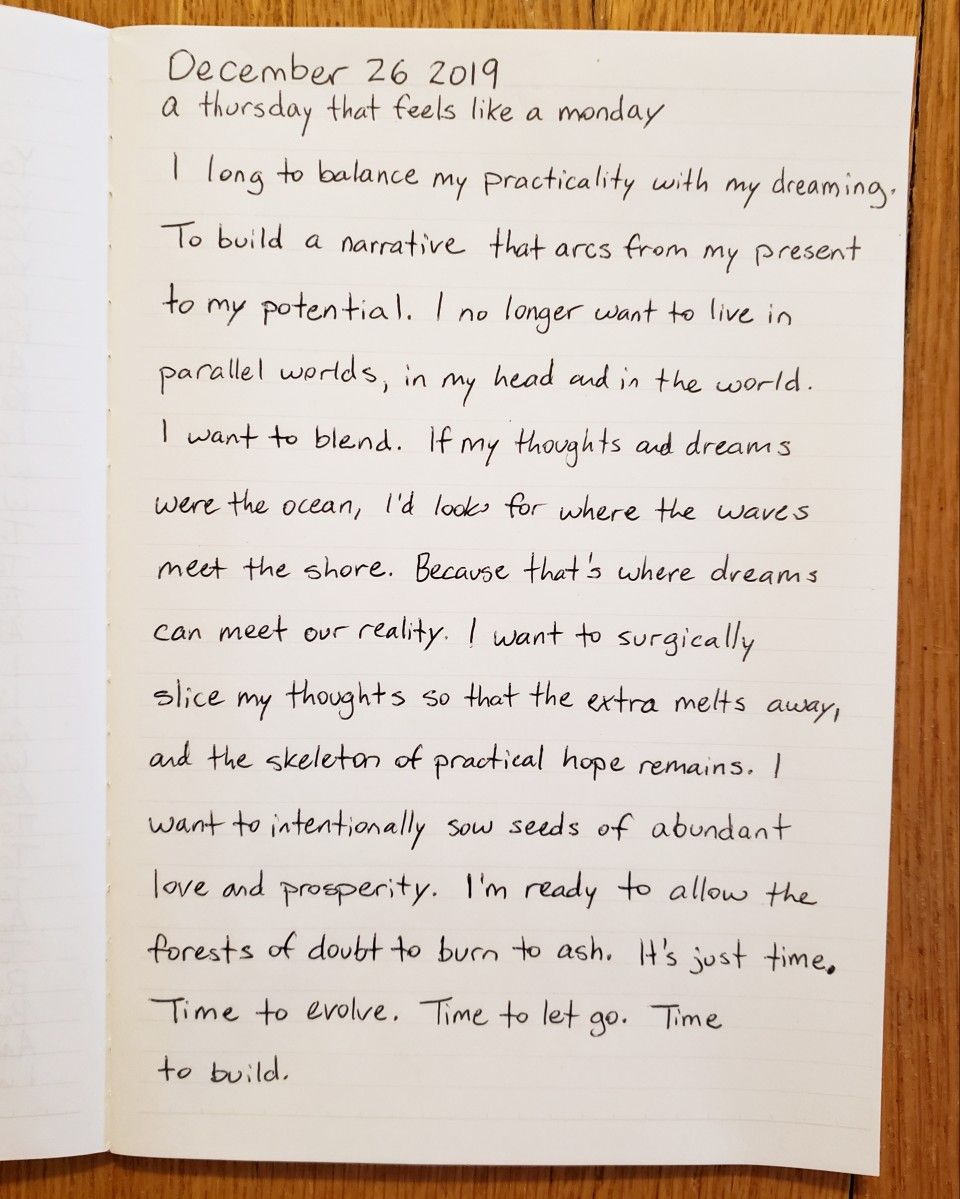 December 26 2019
a thursday that feels like a monday
I long to balance my practicality with my dreaming.
To build a narrative that arcs from my present
to my potential. I no longer want to live in
parallel worlds, in my head and in the world.
I want to blend. If my thoughts and dreams
were the ocean, I'd look for where the waves
meet the shore. Because that's where dreams
can meet our reality. I want to surgically
slice my thoughts so that the extra melts away,
and the skeleton of practical hope remains. I
want to intentionally sow seeds of abundant
love and prosperity. I'm ready to allow the
forests of doubt to burn to ash. It's just time.
Time to evolve. Time to let go. Time
to build.